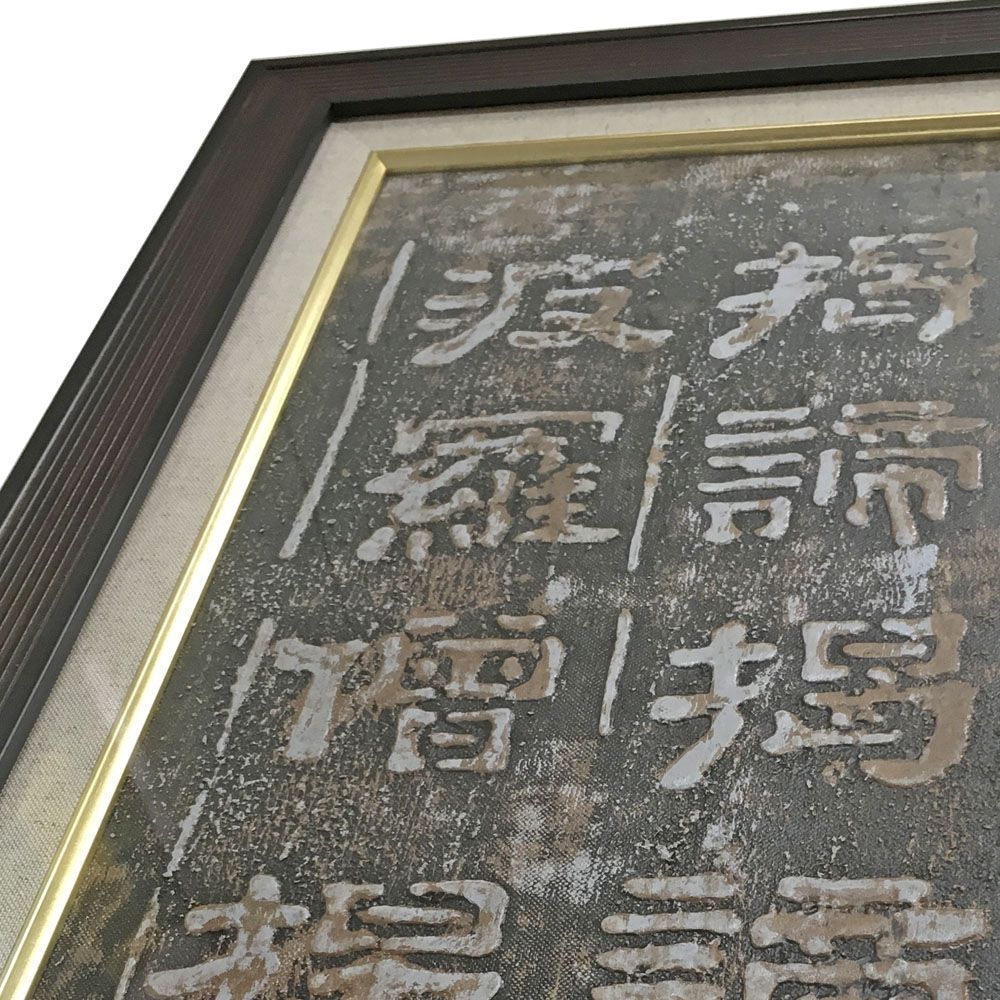 揭諦揭諦
波羅僧揭